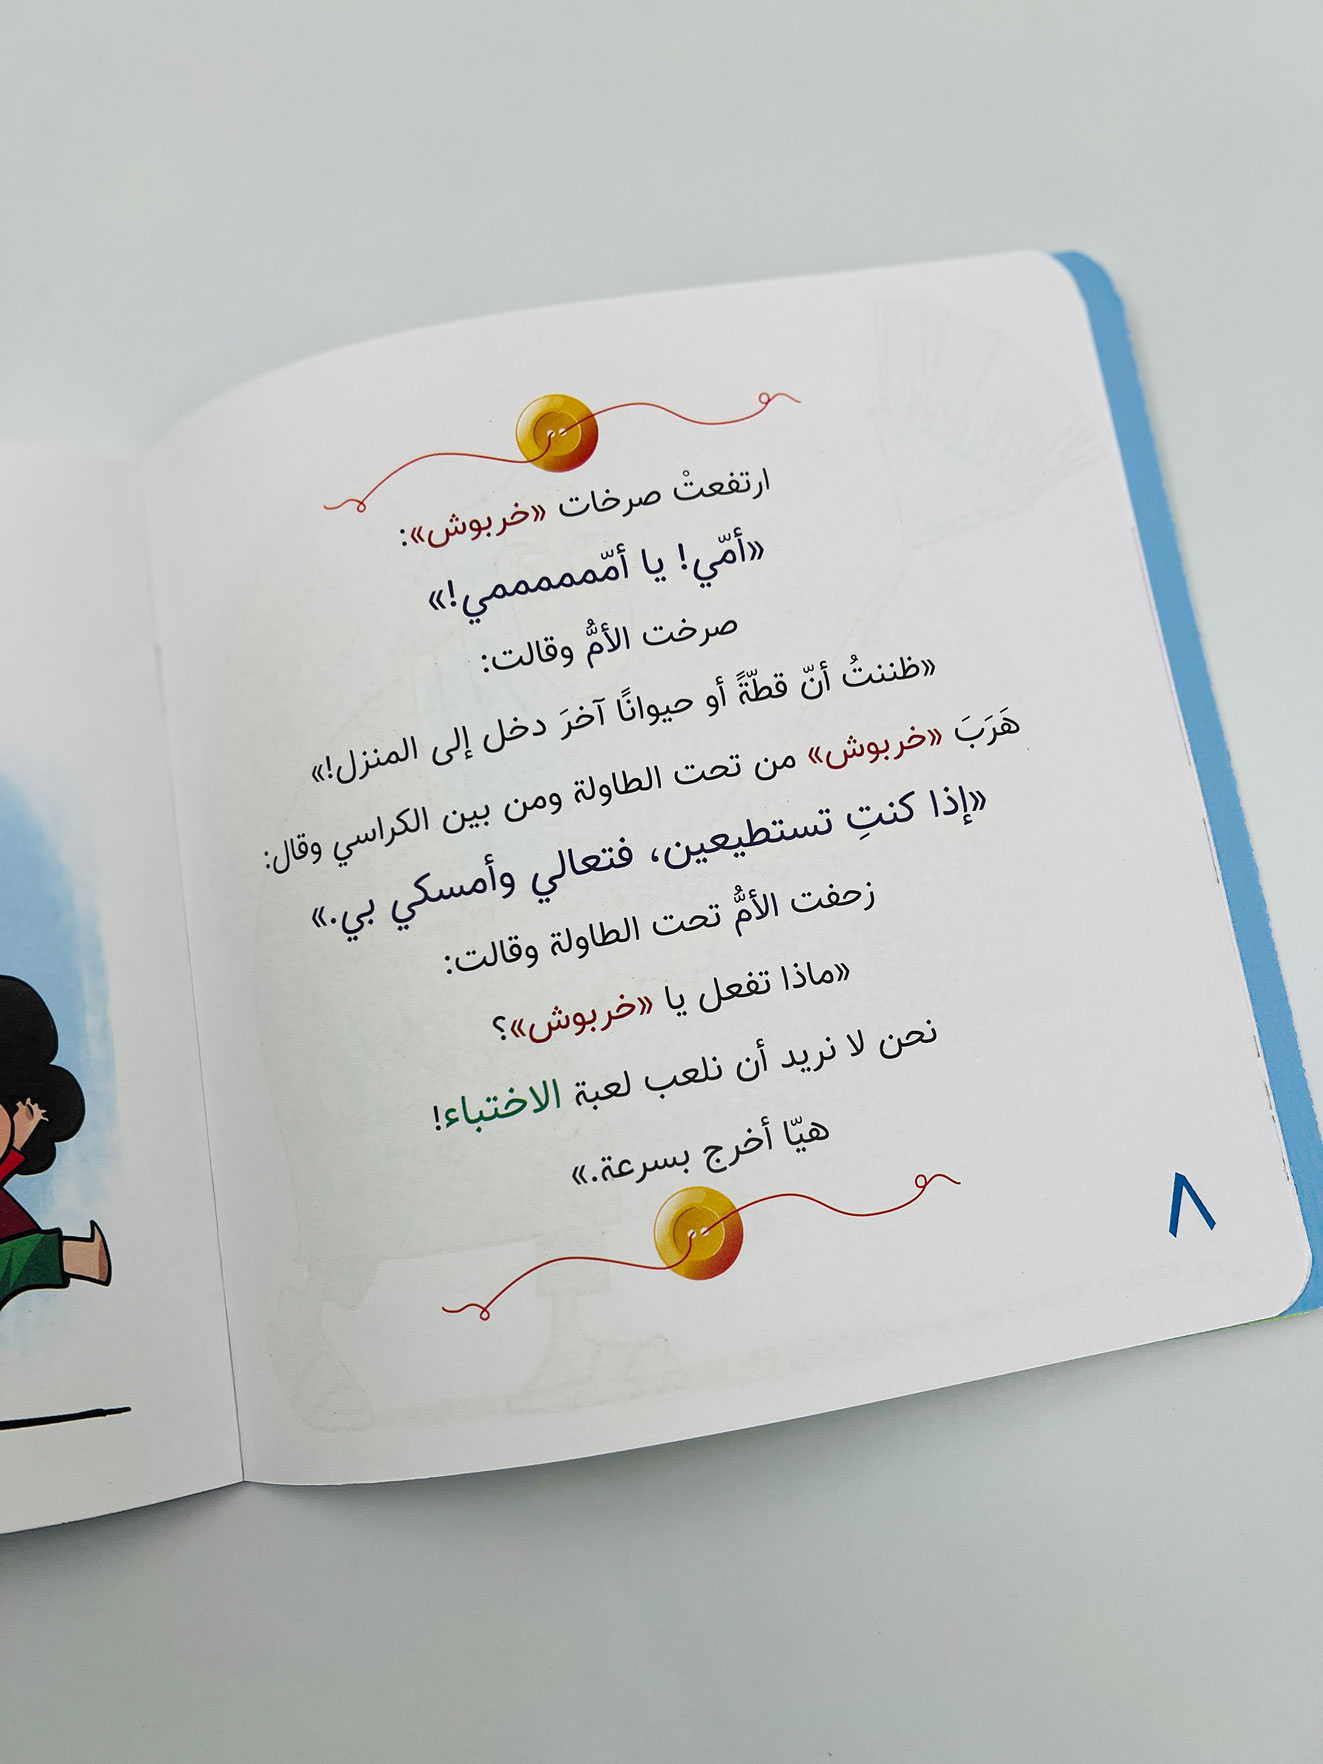 ارتفعتْ صرخات «خربوش»:
«أمّي! يا أمّمممممي!»
صرخت الأمُّ وقالت:
«ظننتُ أنّ قطّةً أو حيوانًا آخرَ دخل إلى المنزل!»
هَرَبَ «خربوش» من تحت الطاولة ومن بين الكراسي وقال:
«إذا كنتِ تستطيعين، فتعالي وأمسكي بي.»
زحفت الأمُّ تحت الطاولة وقالت:
«ماذا تفعل يا «خربوش»؟
نحن لا نريد أن نلعب لعبة الاختباء!
هيّا أخرج بسرعة.»
٨